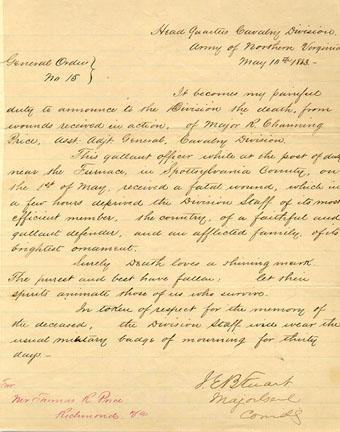 Head Quarters Cavalry Division
Army of Northern Virginia
May 10th 1863.-
General Order }
No 15 }
It becomes my painful
duty to announce to the Division the death, from
wounds received in action, of Major R. Channing
Price, Asst. Adjt. General, Cavalry Division.
This gallant officer while at the post of duty
near the Furnace, in Spotsylvania County, on
the 1st of May, received a fatal wound, which in
a few hours deprived the Division Staff of its most
efficient member, the country, of a faithful and
gallant defender, and an afflicted family, of its
brightest ornament.
Surely Death loves a shining mark.
The purest and best have fallen; let their
spirits animate those of us who survive.
In token of respect for the memory of
the deceased, the Division Staff will wear the
usual military badge of mourning for thirty
days -
J E B Stuart
Major Genl
Comdg
For
Mrs Thomas R Price
Richmond Va